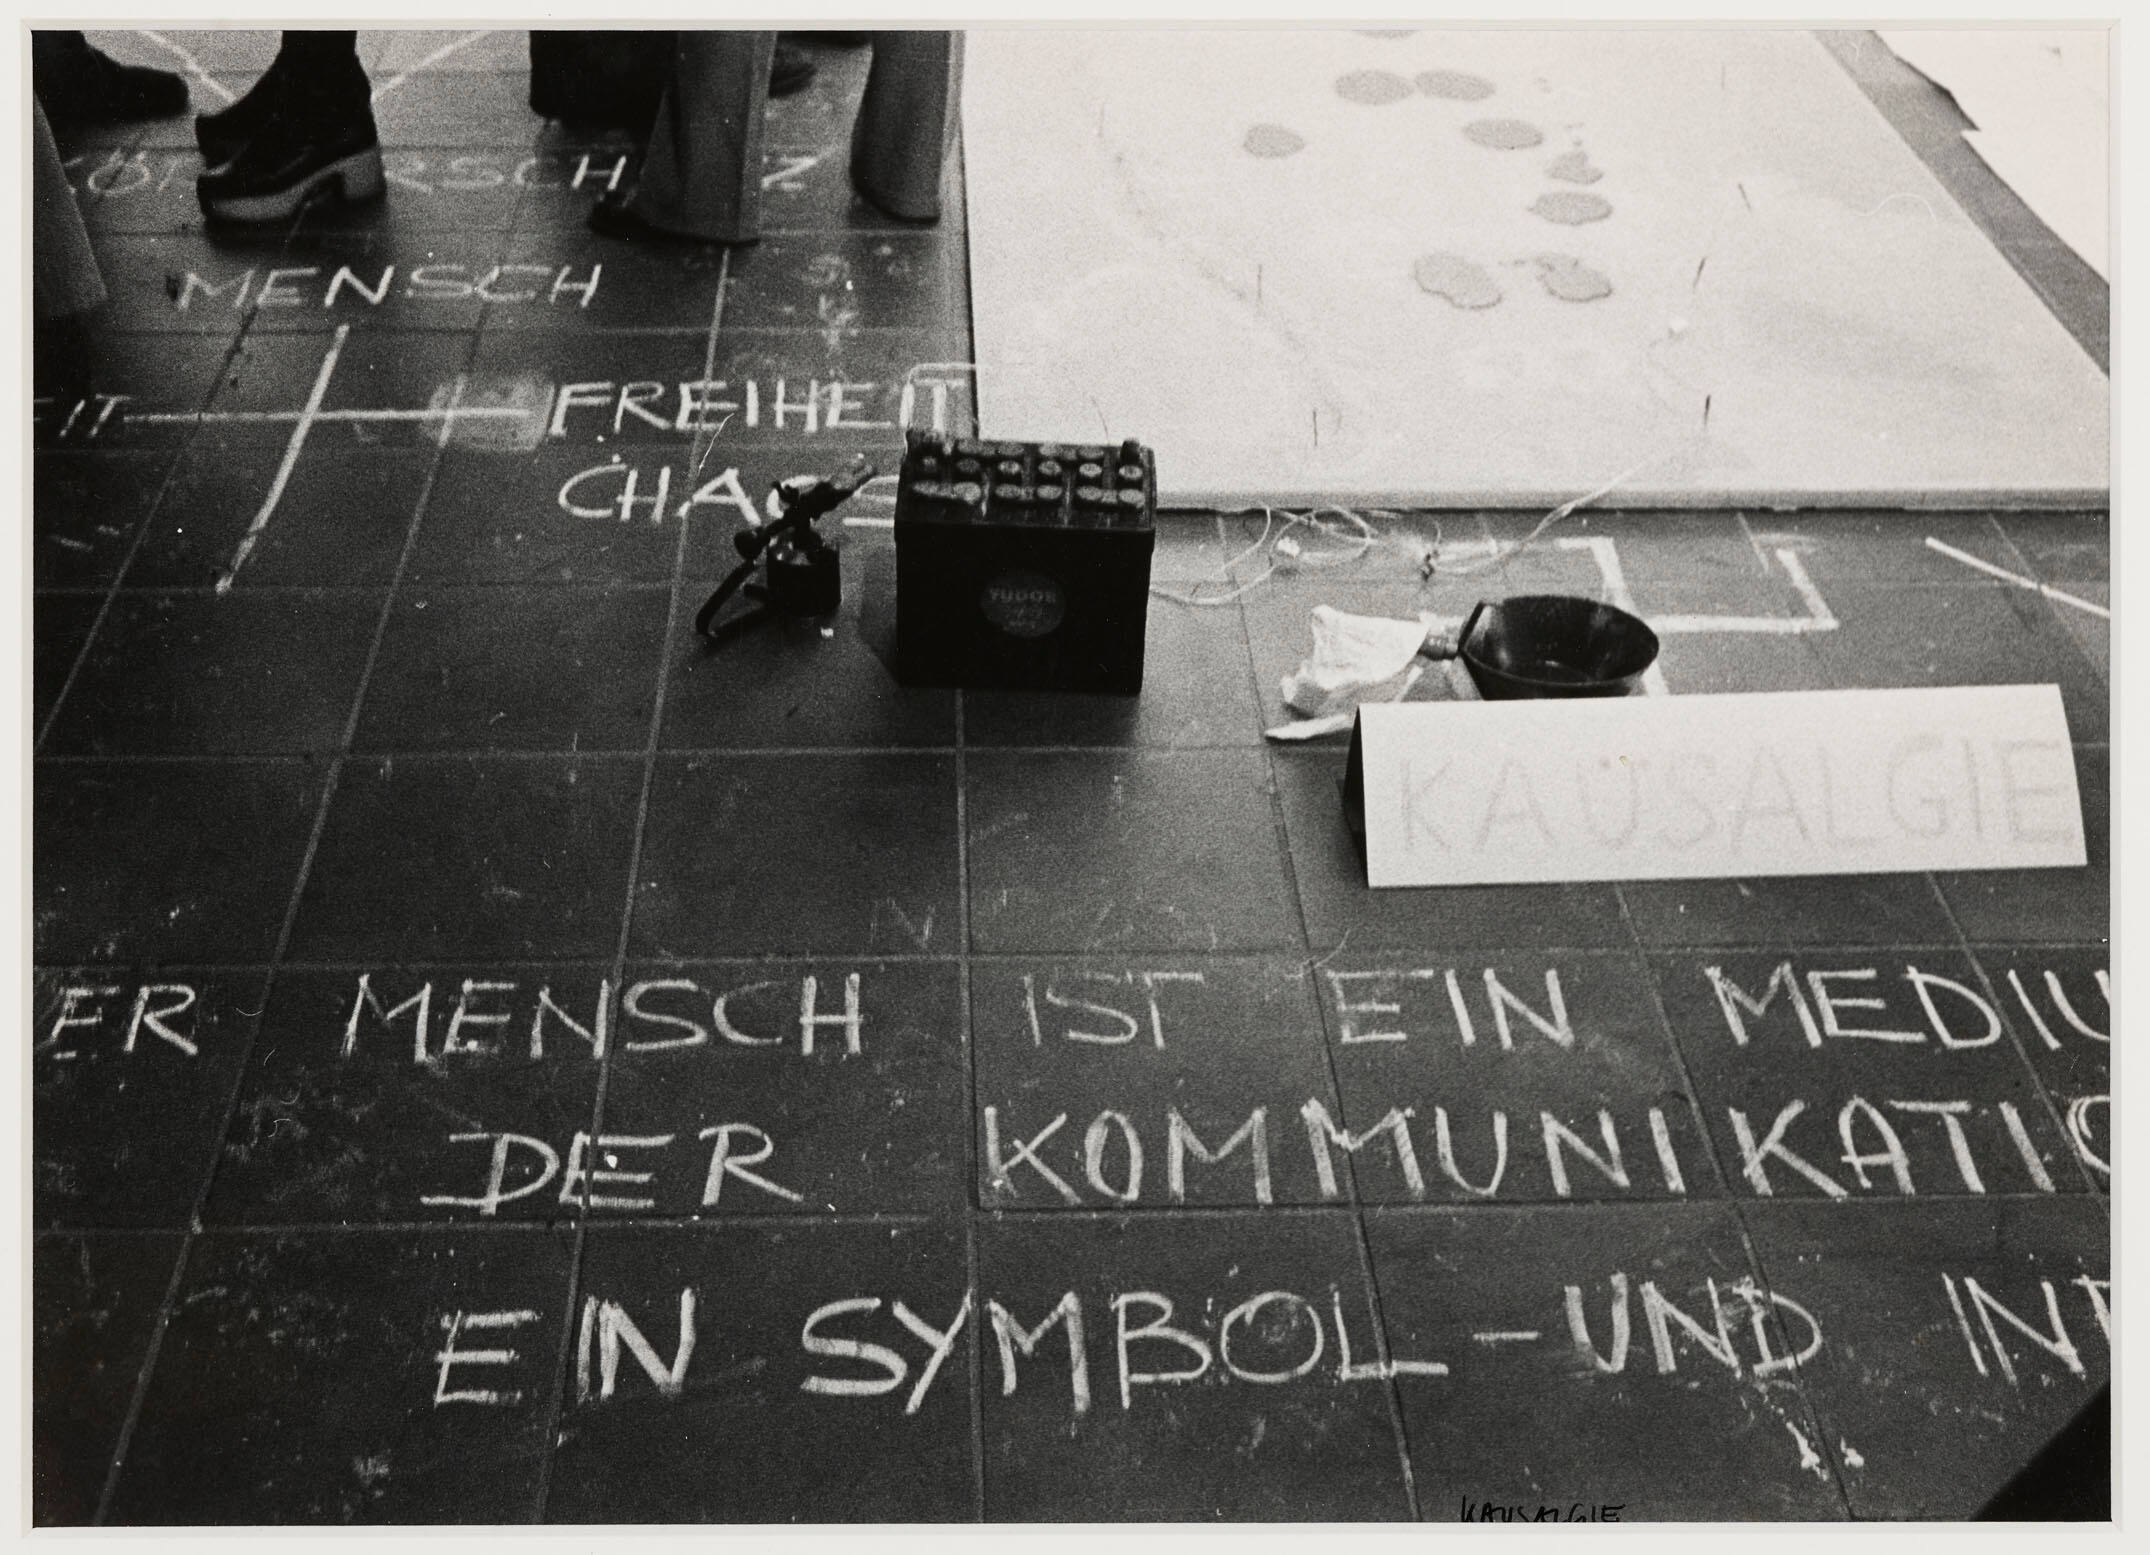 MENSCH
EIT
FREIHEIT
CHAOS
TUDOR
KAUSALGIE
ER MENSCH IST EIN MEDIU
DER KOMMUNIKATIO
EIN SYMBOL - UND IN
KAUSALGIE